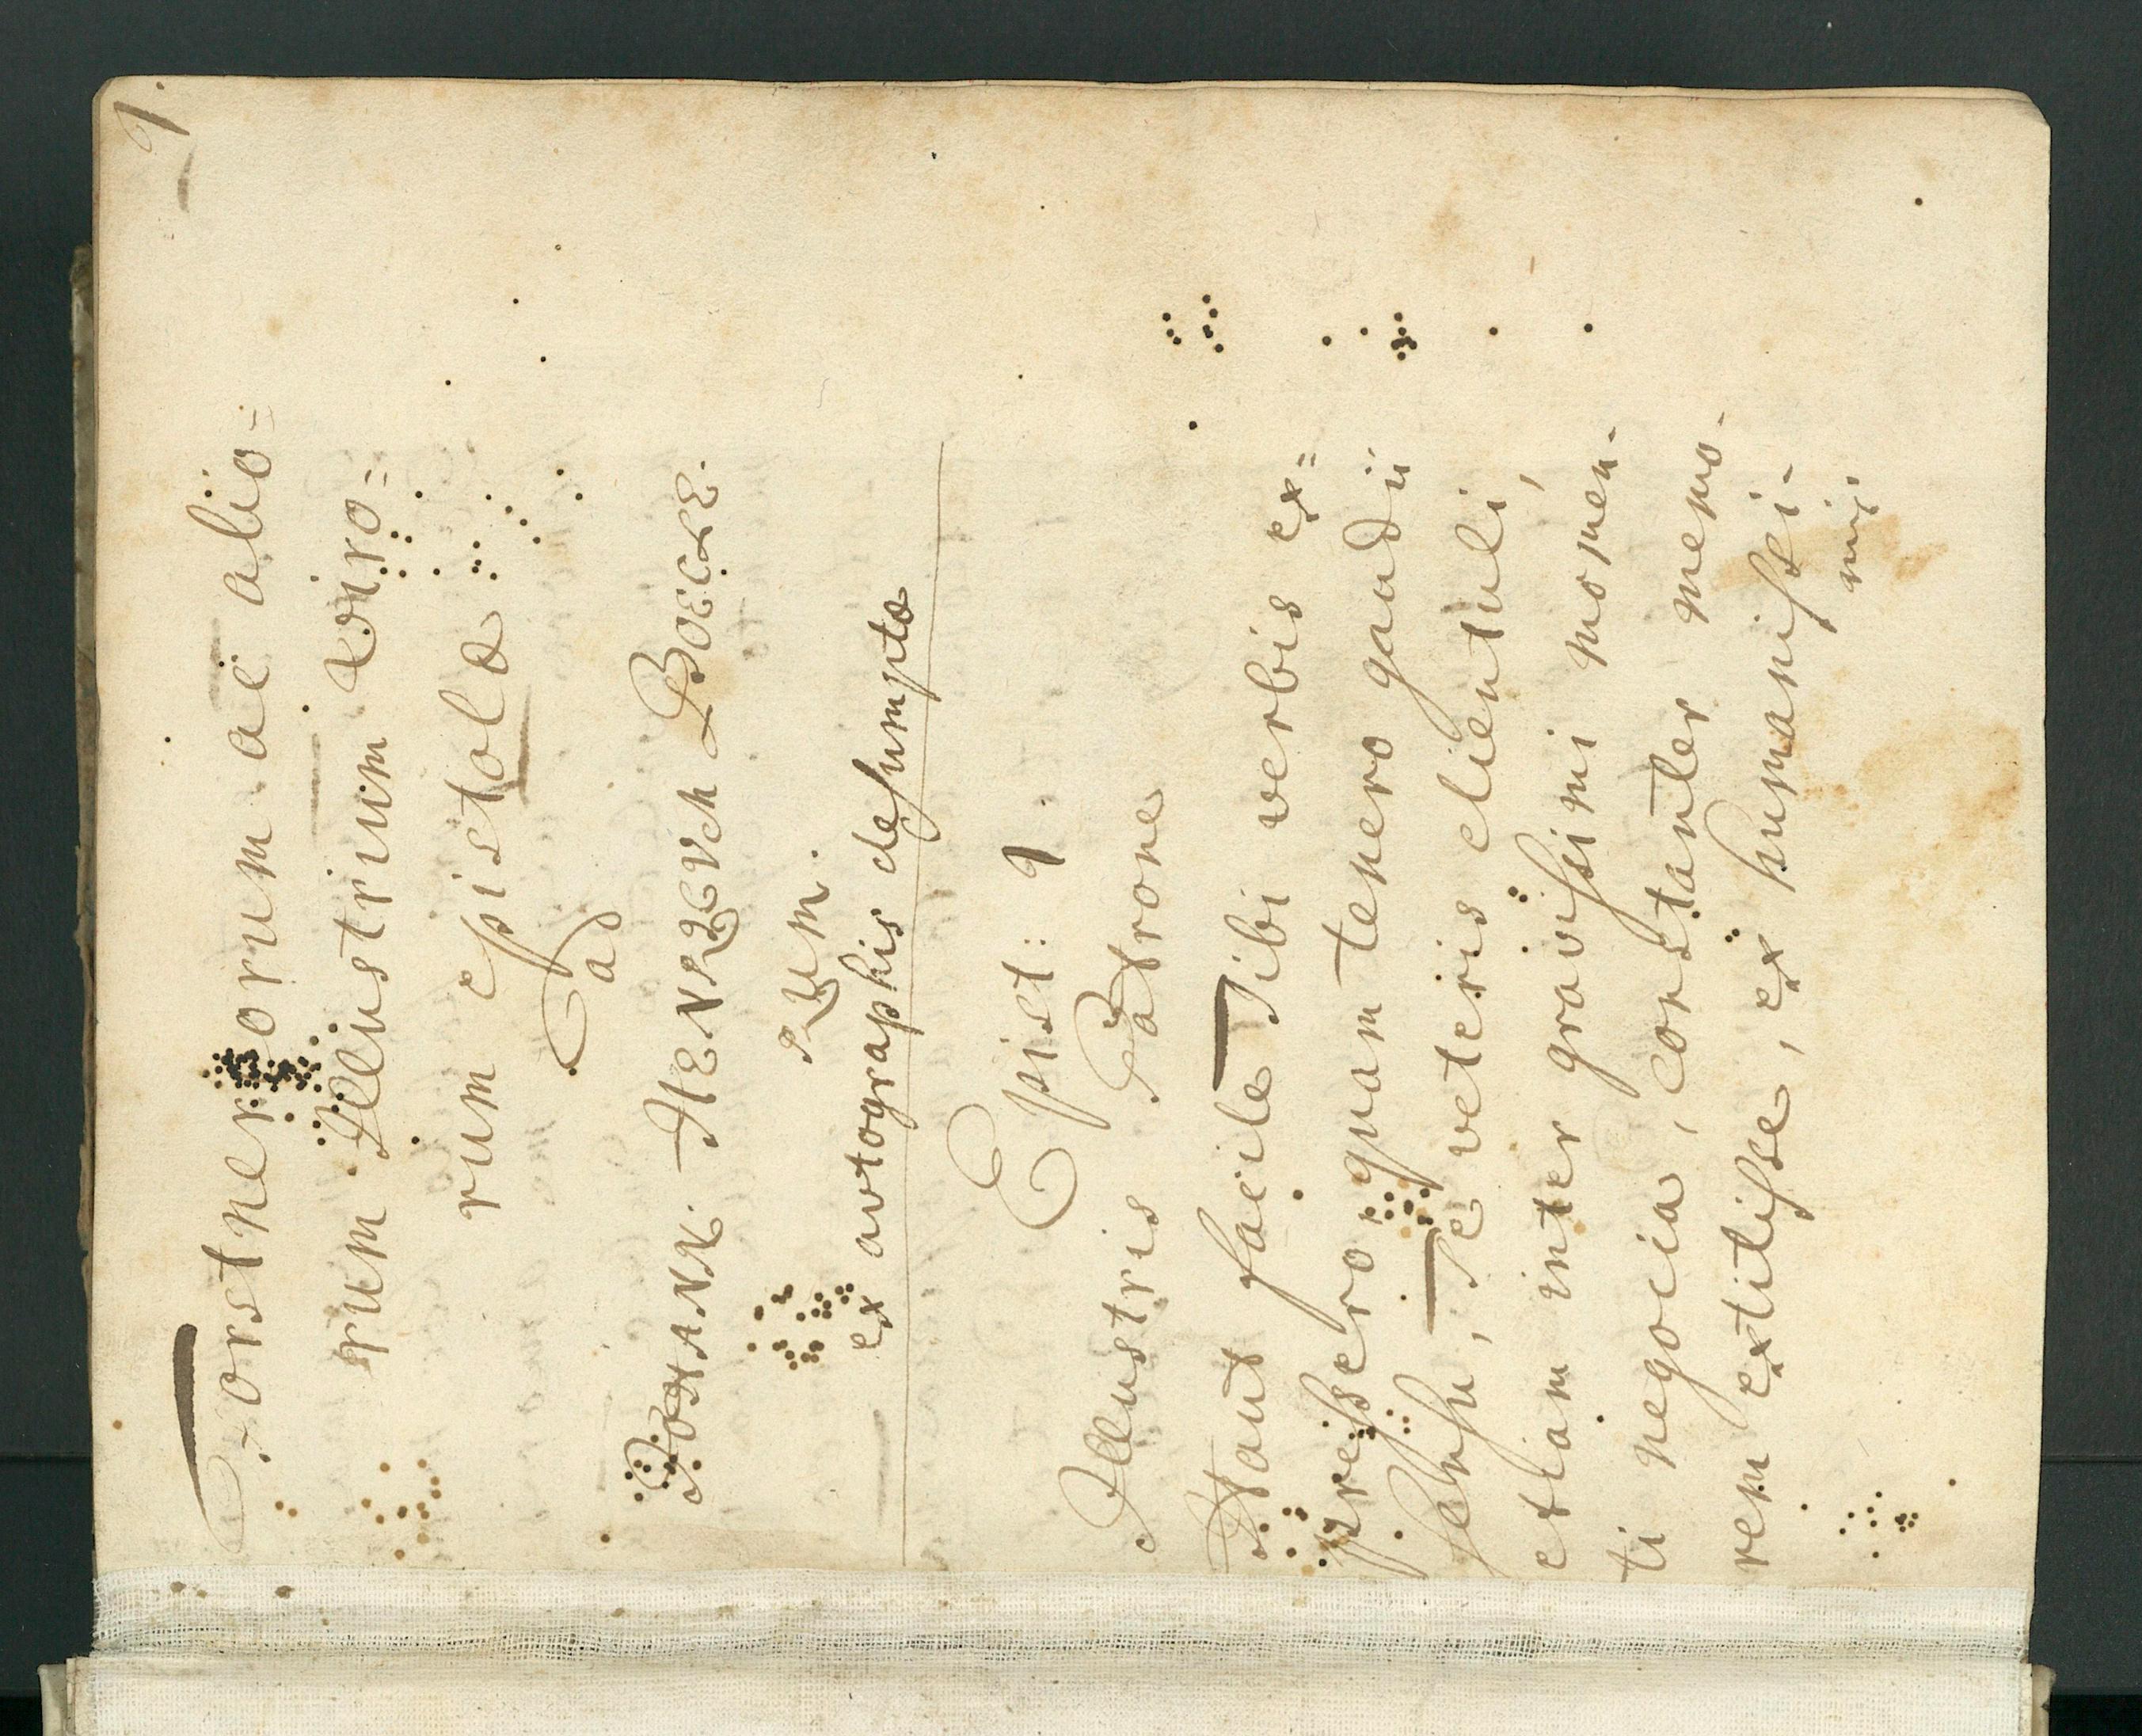 1.
Forstnerorum ac alio=
rum Illustrium viro=
rum epistolæ
ad
JOHANN. HENRICUM BOECLE
RUM.
ex autographis desumptæ
Epist: 1.
Illustris Patrone
Haud facile Tibi verbis ex=
pressero, quam tenero gaudii
sensu, Te veteris clientuli,
etiam inter gravissimi momen-
ti negocia, constanter memo-
rem extitisse, ex humanissi-
mis